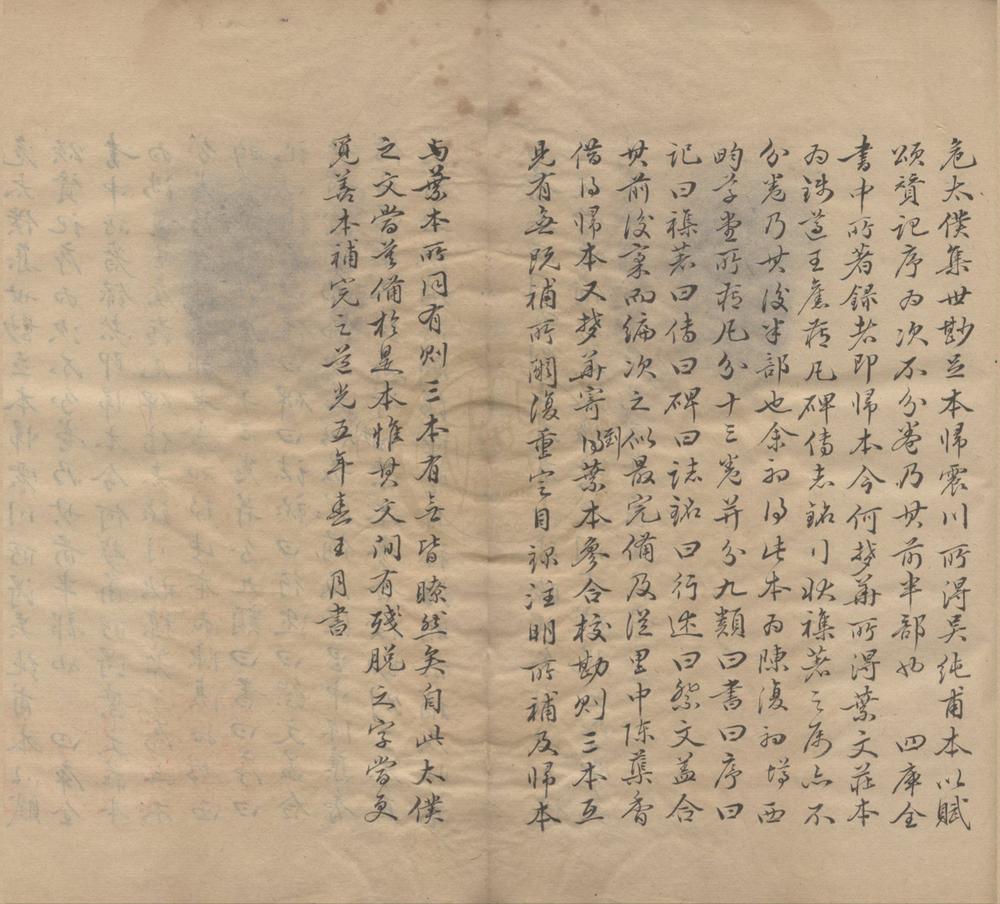 危太僕集世尠足本歸震川所得吳純甫本以賦
頌贊記序為次不分卷乃其前半部也 四庫全
書中所著録者即歸本今何夢華所得葉文莊本
為錢遵王舊藏凡碑傳志銘行狀襍著之屬亦不
分卷乃其後半部也余初得此本為陳復初增西
畇草堂所藏凡分十三卷并分九類曰書曰序曰
記曰襍著曰傳曰碑曰誌銘曰行述曰祭文蓋合
其前後稾而編次之似最完備及從里中陳葉香
借得歸本又夢華寄劉葉本參合校勘則三本互
見有無既補所闕復重定目録注明所補及歸本
与葉本所同有則三本有無皆瞭然矣自此太僕
之文當莫備於是本惟其文間有殘脫之字當更
覓善本補完之道光五年春王月書